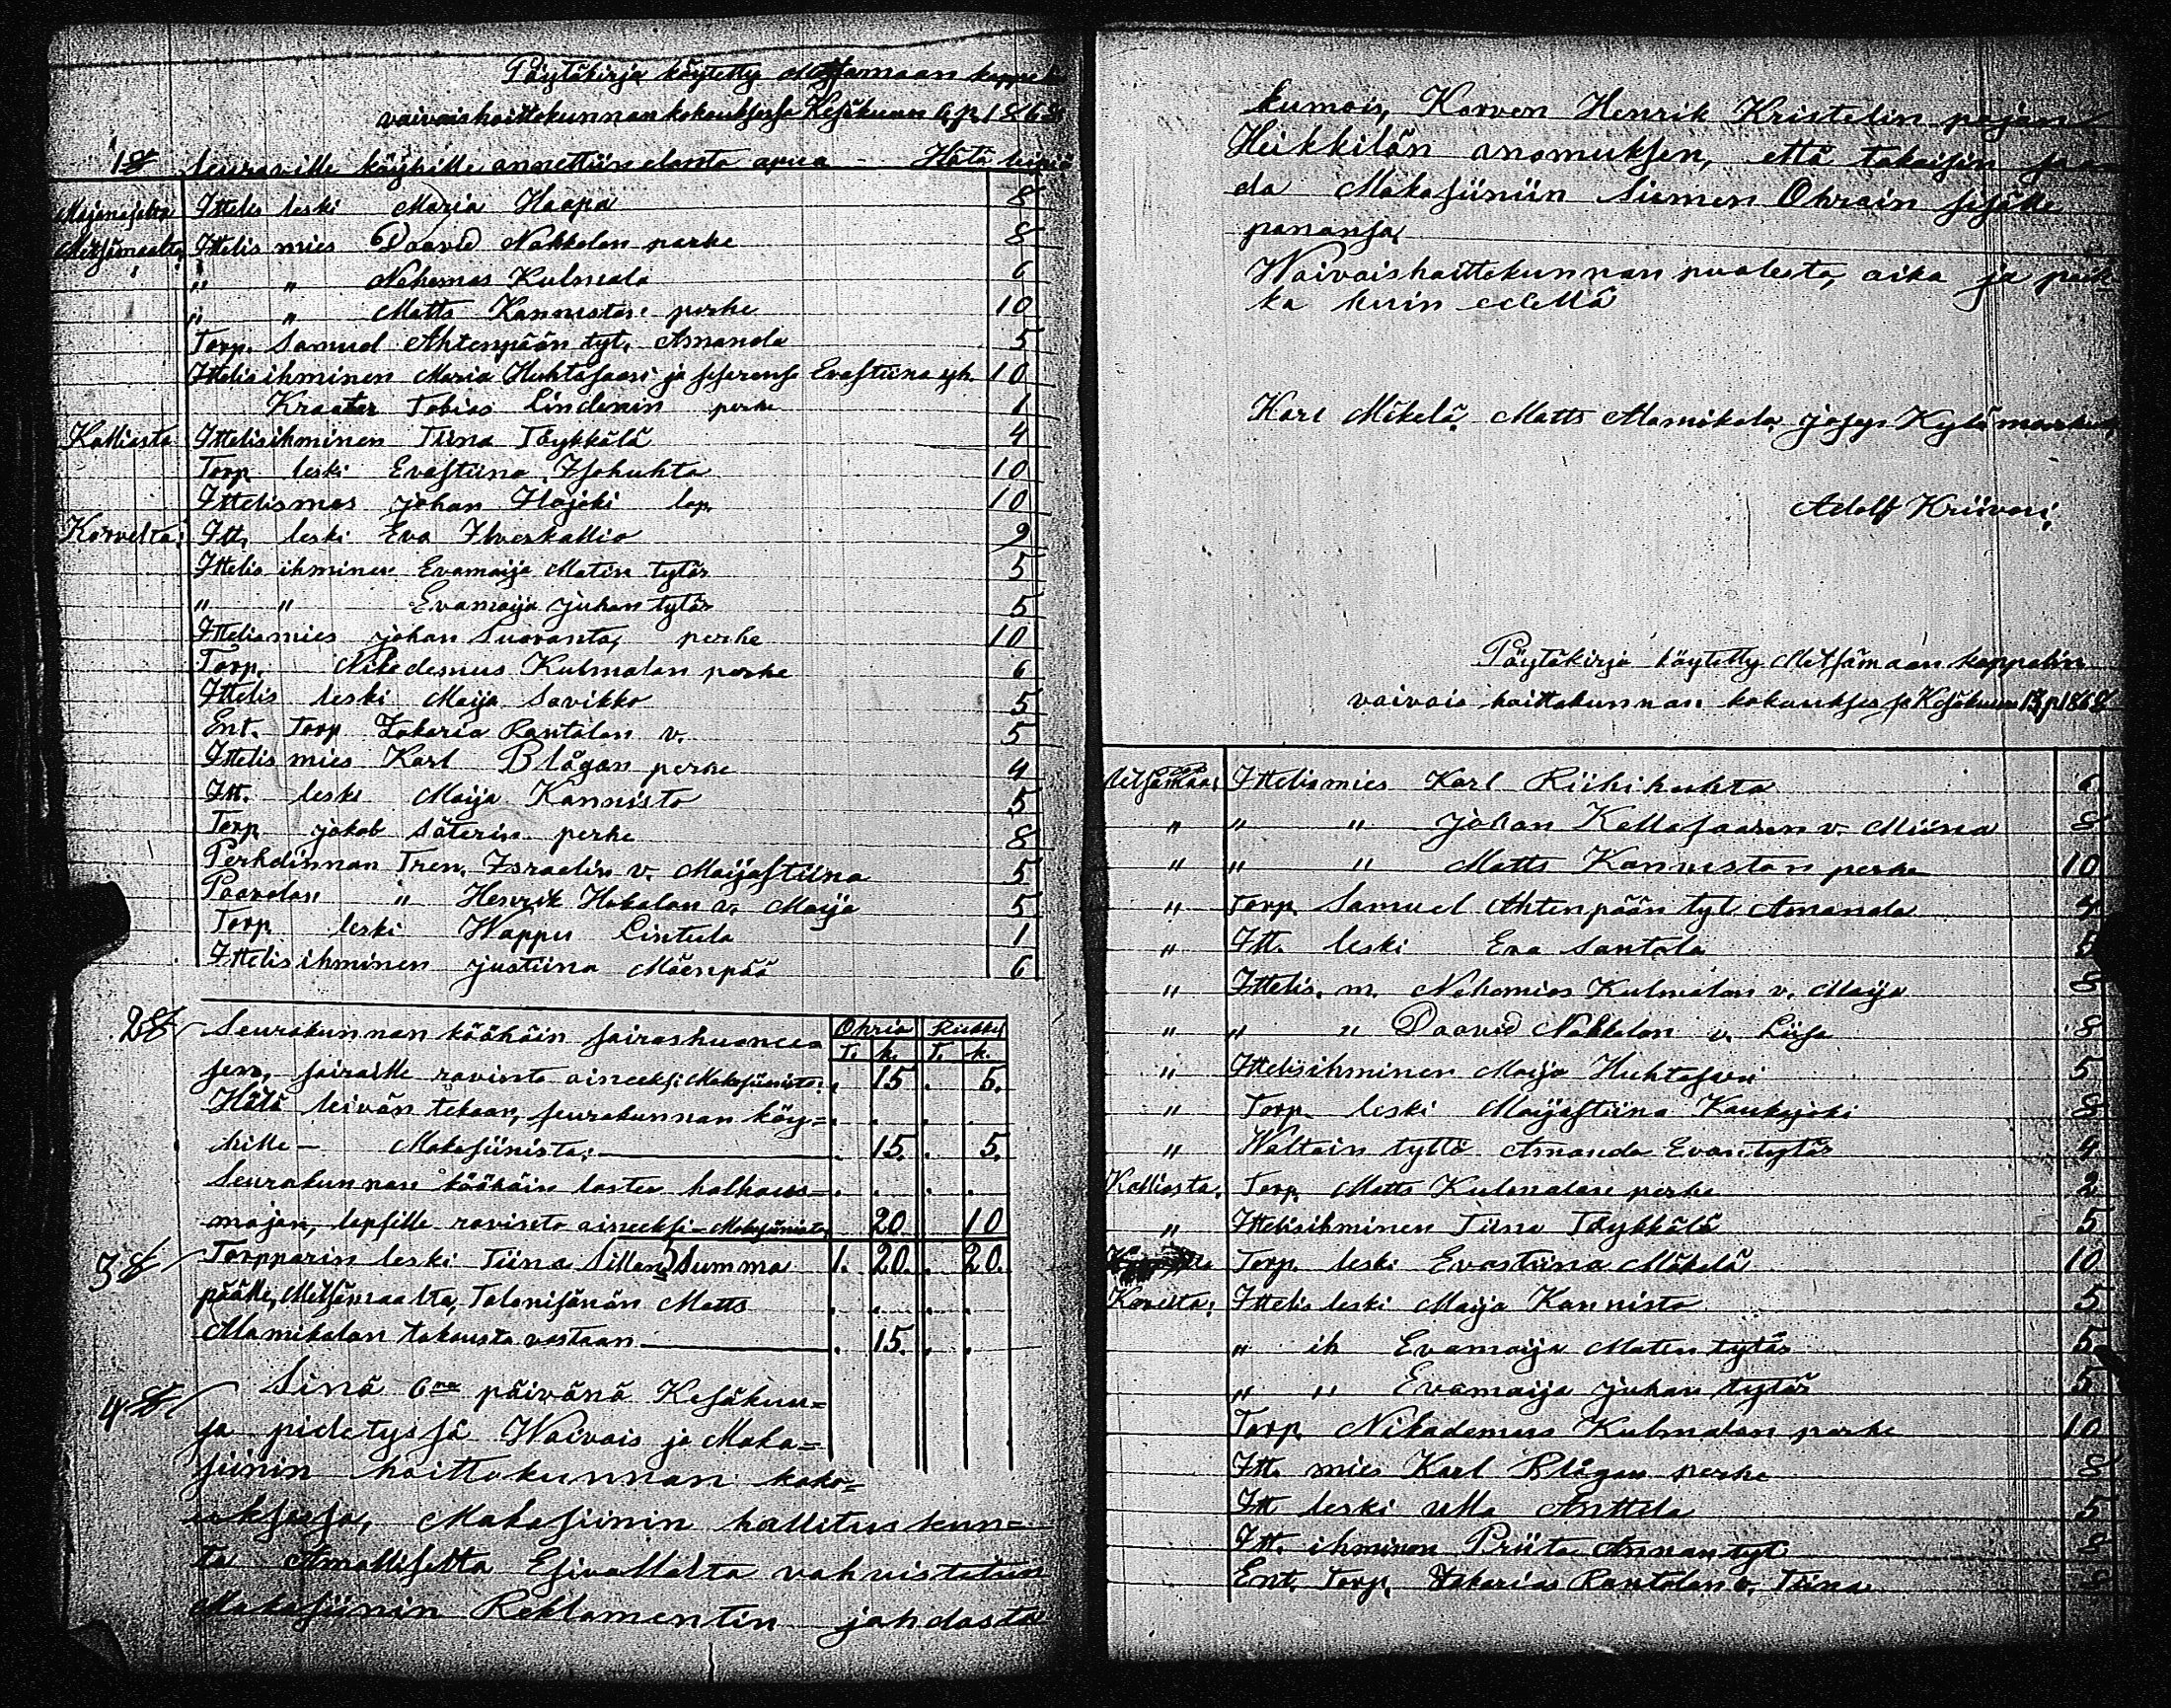 Pöytäkirja käytetty Metsämaan kappelin
vaivaishoittokunnan kokouksessa Kesäkuun 6 p. 1868
1§ Seuraville köyhille annettiin elanto apua Hätä leipä
Ittelis leski Maria Haapa 8
Metsämaalta, Ittelis mies Daavid Nakkolan perhe 8
" " Nehemas Kulmala 6
" " Matts Kanniston perhe 10
Torp. Samuel Ahtenpään tyt. Amanda 5
Ittelisihminen Maria Huhtasaari ja sisarensa Evastiina yh. 10
Kraatar Tobias Lindenin perhe 1
Kalliasta Ittelisihminen Tiina Töykkälä 4
Torp. leski Evastiina Isohuhta 10
Ittelismes Johan Hajoki lap. 10
Korvelta: Itt. leski Eva Ilveskallio 9
Ittelis ihminen Evamaija Matin tytär 5
" " Evamaija Juhan tytär 5
Ittelismies Johan Suoranta, perhe 10
Torp. Nikedemus Kulmalan perhe 6
Ittelis leski Maija Savikko 5
Ent. Torp Zakaria Rantalan v. 5
Ittelis mies Karl Blågan perhe 4
Itt. leski Maija Kannisto 5
Torp. Jakob Säterin perhe 8
Perhelinnan Tren. Israelin v. Maijastiina 5
Paavolan " Henrik Hakalan v. Maija 5
Torp leski Wappu Lintula 1
Ittelisihminen Justiina Mäenpää 6
2§ Seurakunnan kööhäin sairashuoneesen Ohria Rukky
T. k. T. k.
sen, sairaille ravinto aineeksi Makasiinista: . 15 . 5.
Hätä leivän tekoon, seurakunnan köy= . . . .
hille — Makasiinista: . 15. . 5.
Seurakunnan kööhäin lasten holhous= . . . .
majan, lapsille ravinto aineeksi — Makasiinista 20 10
3§ Torpparin leski Tiina Sillan Summa 1. 20. . 20.
päälle, Metsämaalta, Talonisänän Matts . . . .
Mamikalan takausta vastaan . 15. . .
4§ Sinä 6na päivänä Kesäkuu=
sa pidetyssä Waivais ja Maka=
siinin hoittokunnan koko=
uksessa, Makasiinin hallituskun=
ta Amallisella Esivallalta vahvistetun
Makasiinin Reklamentin johdosta
kumois, Korven Henrik Kristelin pojan
Heikkilän anomuksen, että takaisin saa
da Makasiiniin Siemen Ohrain sisälle
panansa,
Waivaishoittokunnan puolesta, aika ja paik
ka kuin edellä
Karl Mäkelä Matts Mamikala Josep Kylämarkus
Adolf Kriivari,
Pöytäkirja käytetty Metsämaan kappelin
vaivais hoittokunnan kokouksessa Kesäkuun 13 p 1868
Metsämaa: Ittelismies Karl Riihihuhta 6
" " " Johan Kallasaaren v. Miina 8
" " " Matts Kanniston perhe 10
" Torp. Samuel Ahtenpään tyt Amanda
" Itt. leski Eva Santala 5
" Ittelis. m. Nehemias Kulmalan v. Maija 8
" " " Daavid Nakkolan v. Liisa 8
" Ittelisihminen Maija Huhtasaari 5
" Torp. leski Maijastiina Kaukojoki 8
" Waltain tyttö Amanda Evan tytär 4
Kalliasta. Torp Matts Kulmalan perhe 2
" Ittelisihminen Tiina Töykkälä 5
Torp. leski Evastiina Mäkelä 10
Korvelta: Ittelis leski Maija Kannisto 5
" ih Evamaija Maten tytär 5
" " Evamaija Juhan tytär 5
Torp. Nikademus Kulmalan perhe 10
Itt. mies Karl Blågan perhe 8
Itt leski Ulla Anttila 5
Itt. ihminen Priita Annan tyt 8
Ent. Torp. Zakarias Rantalan v. Tiina 8